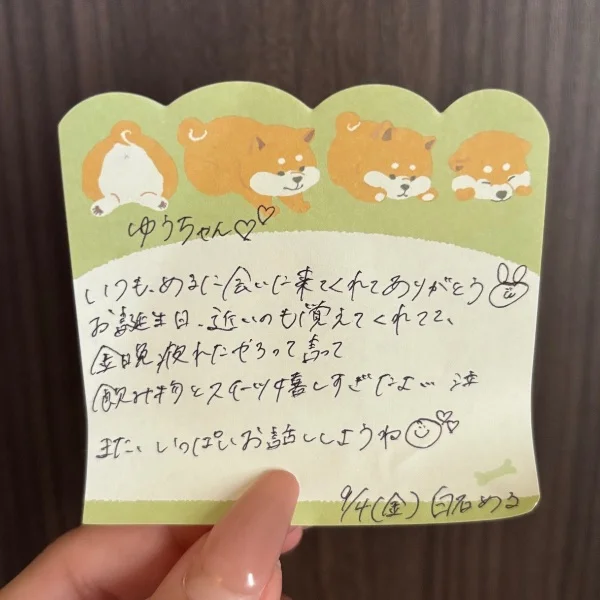 ゆうちゃん♡♡
いつも、めるに会いに来てくれてありがとう
お誕生日、近いのも覚えてくれてて、
金晩疲れたやろって言って
飲み物とスイーツ嬉しすぎたよ… 泣
また、いっぱいお話ししようね
9/4(金) 白石める